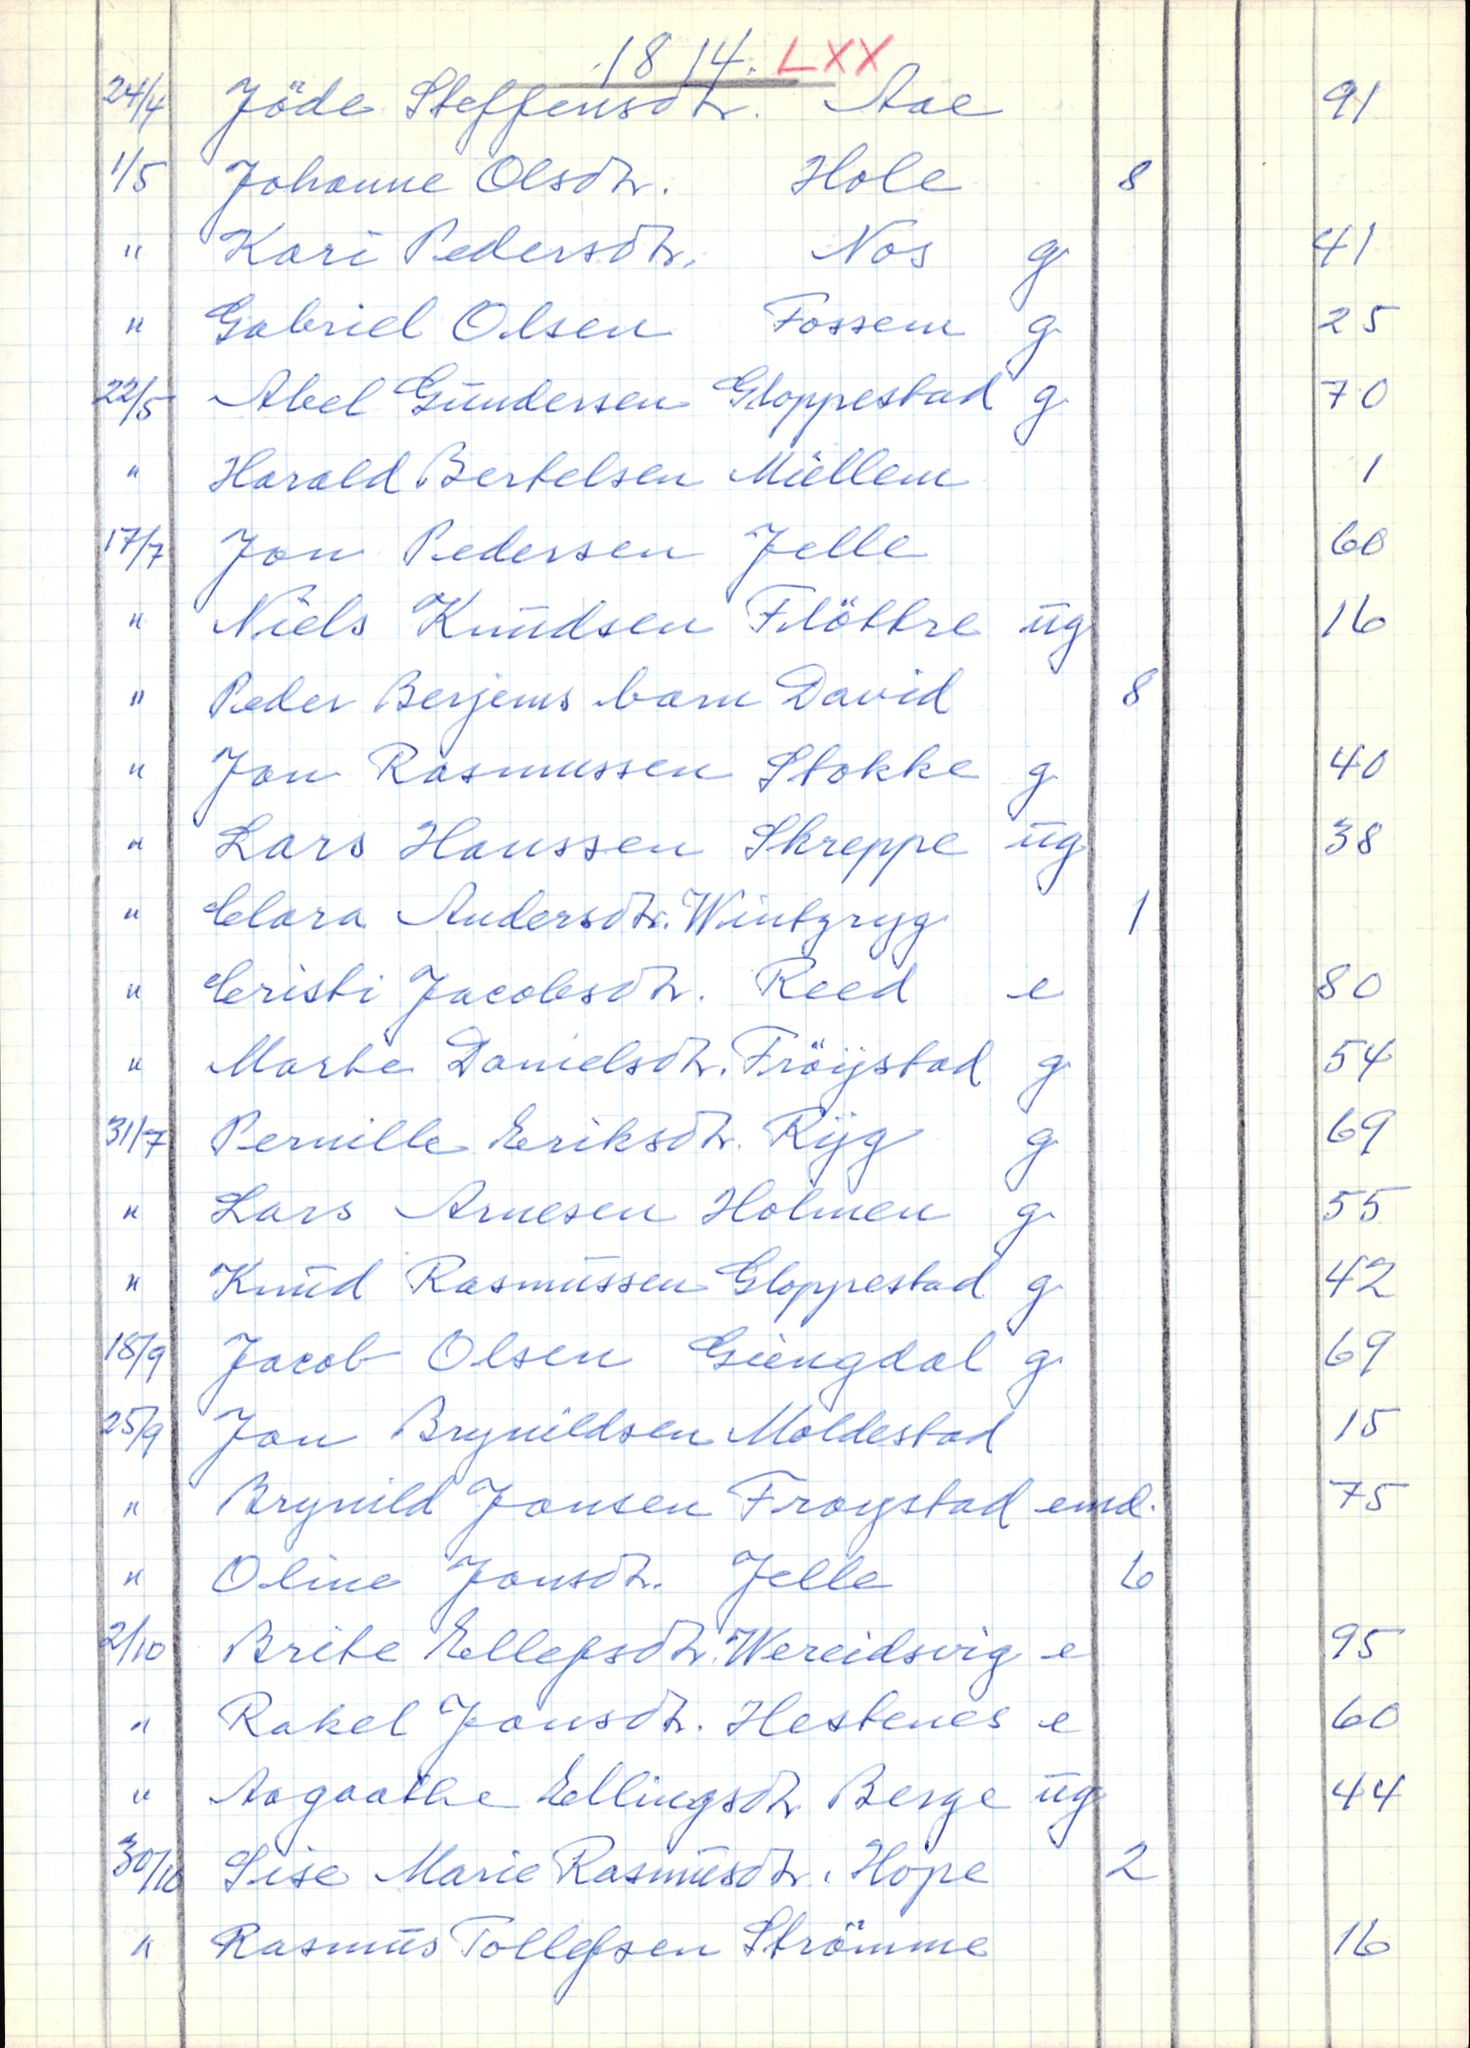 1814. LXX
24/4 Jöde Steffensdtr. Aae 91
1/5 Johanne Olsdtr. Hole 8
" Kari Pedersdtr. Nos g 41
" Gabriel Olsen Fossem g 25
22/5 Abel Gundersen Gloppestad g 70
" Harald Bertelsen Miellem 1
17/7 Jon Pedersen Jelle 60
" Niels Knudsen Flöttre ug 16
" Peder Berjems barn David 8
" Jon Rasmussen Stokke g 40
" Lars Hanssen Skreppe ug 38
" Clara Andersdtr. Wintgryg 1
" Cristi Jacobsdtr. Reed e 80
" Marte Danielsdtr. Fröystad g 54
31/7 Pernille Eriksdtr. Ryg g 69
" Lars Arnesen Holmen g 55
" Knud Rasmussen Gloppestad g 42
18/9 Jacob Olsen Giengdal g 69
25/9 Jon Brynildsen Moldestad 15
" Brynild Jonsen Froystad emd. 75
" Oline Jonsdtr. Jelle 6
2/10 Brite Ellefsdtr. Wereidsvig e 95
" Rakel Jonsdtr. Hestenes e 60
" Aagaathe Ellingsdtr Berge ug 44
30/10 Sise Marie Rasmusdtr. Hope 2
" Rasmus Tollefsen Strömme 16